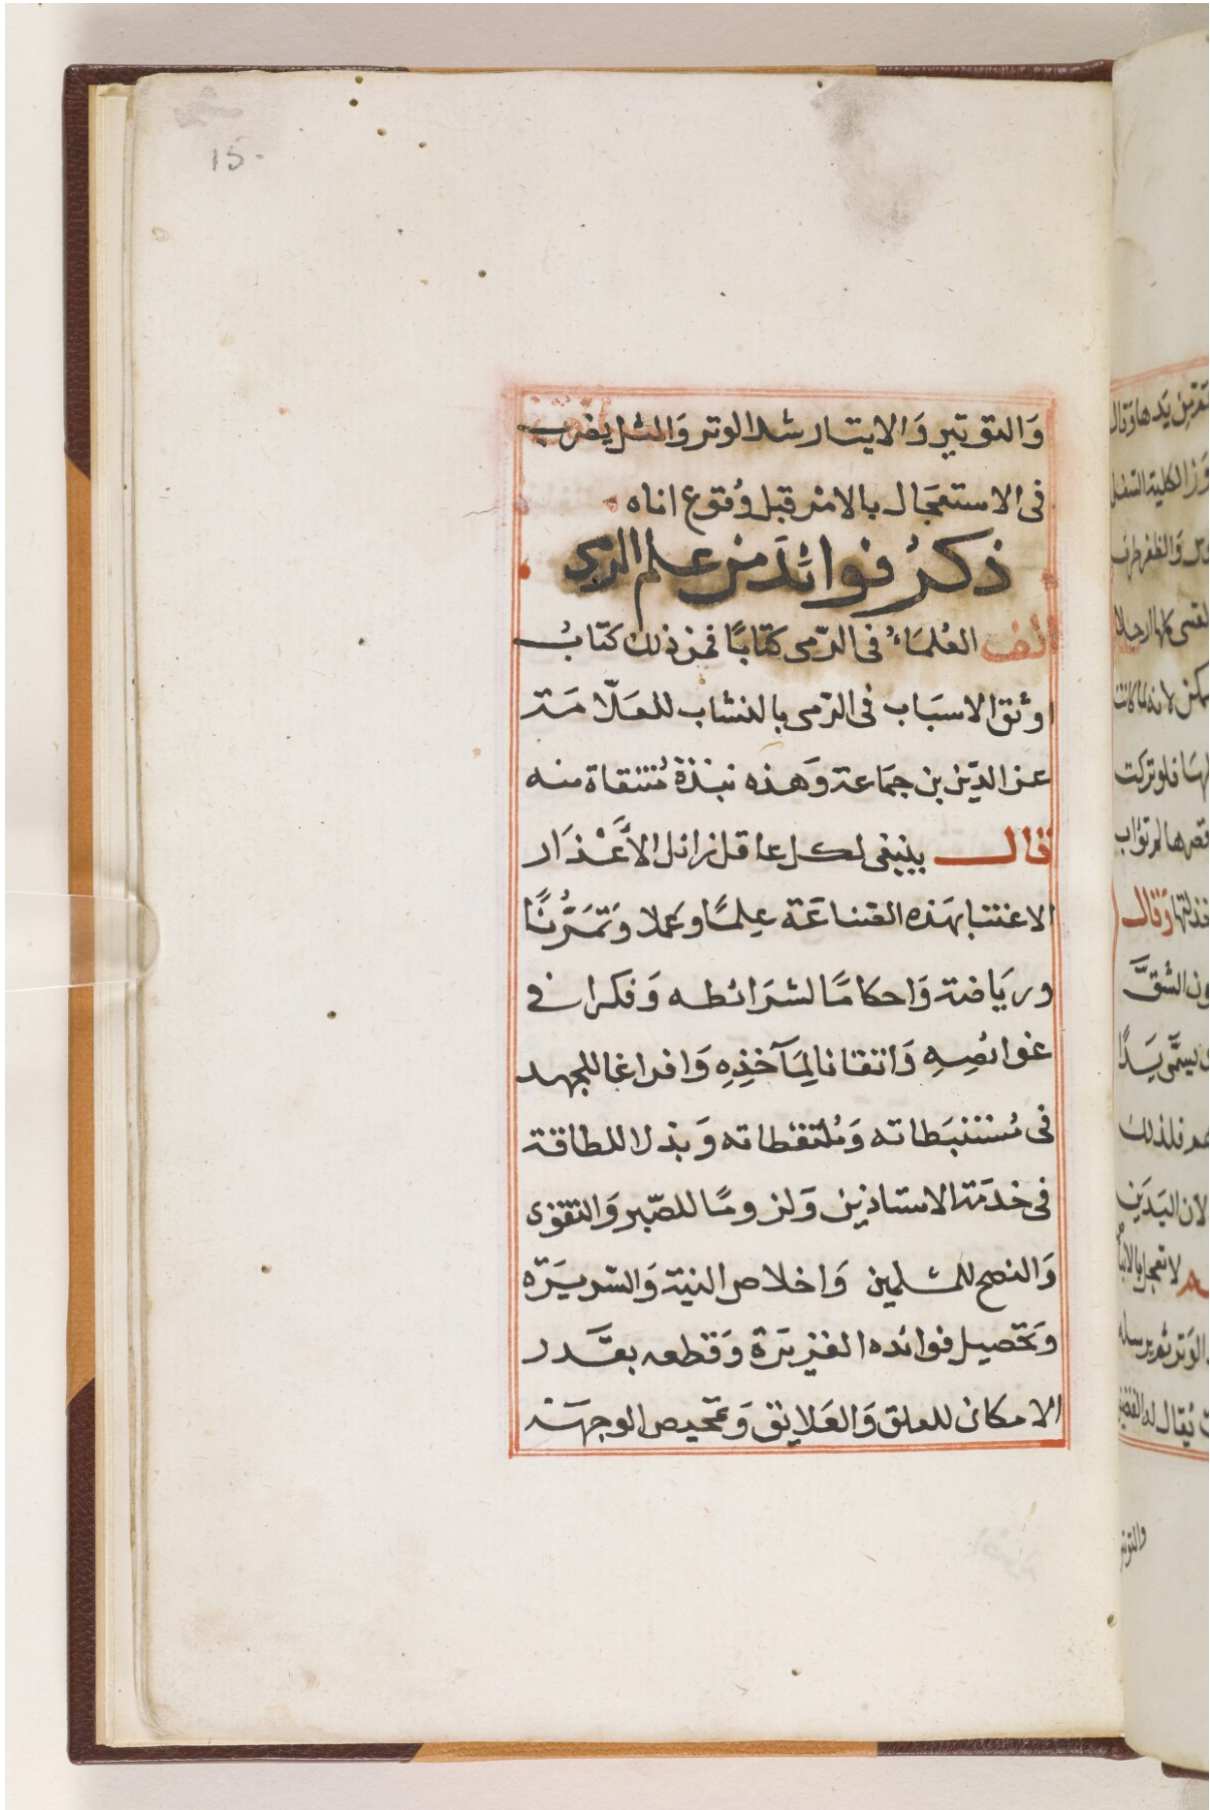 15
وَالتوتير وَالايتار شد الوتر وَالمثل يضرب
فى الاستعجَال بالامر قبل وُقوع اناه
ذكرُ فوائدَ من علم الرمى
الف العُلمَاءُ فى الرّمى كتابًا فمن ذلك كتابُ
اوثق الاسبَاب فى الرّمى بالنشاب للعَلّامَة
عز الدّين بن جمَاعة وَهَذه نبذة مُنتقاة منه
قال ينبغى لكل عاقل زائل الأَعْذَار
الاعتنا بهَذه الصناعَة عِلمًا وعَملا وَتمَرُّنًا
وريَاضة وَاحكامًا لشرَائطه وَفكرا فى
غوائصِهِ وَاتقانا لِمَآخذِهِ وَافراغا للجهد
فى مُستنبَطاته وَمُلتقطاته وَبذلا للطاقة
فى خدمَة الاستاذين وَلزومًا للصّبر وَالتقوى
وَالنصح للمسلمين وَاخلاص النية وَالسّريرَة
وَتحصيل فوائده الغزيرَة وَقطعه بقَدر
الامكان للعلق وَالعَلايق وَتمحيص الوجهَة